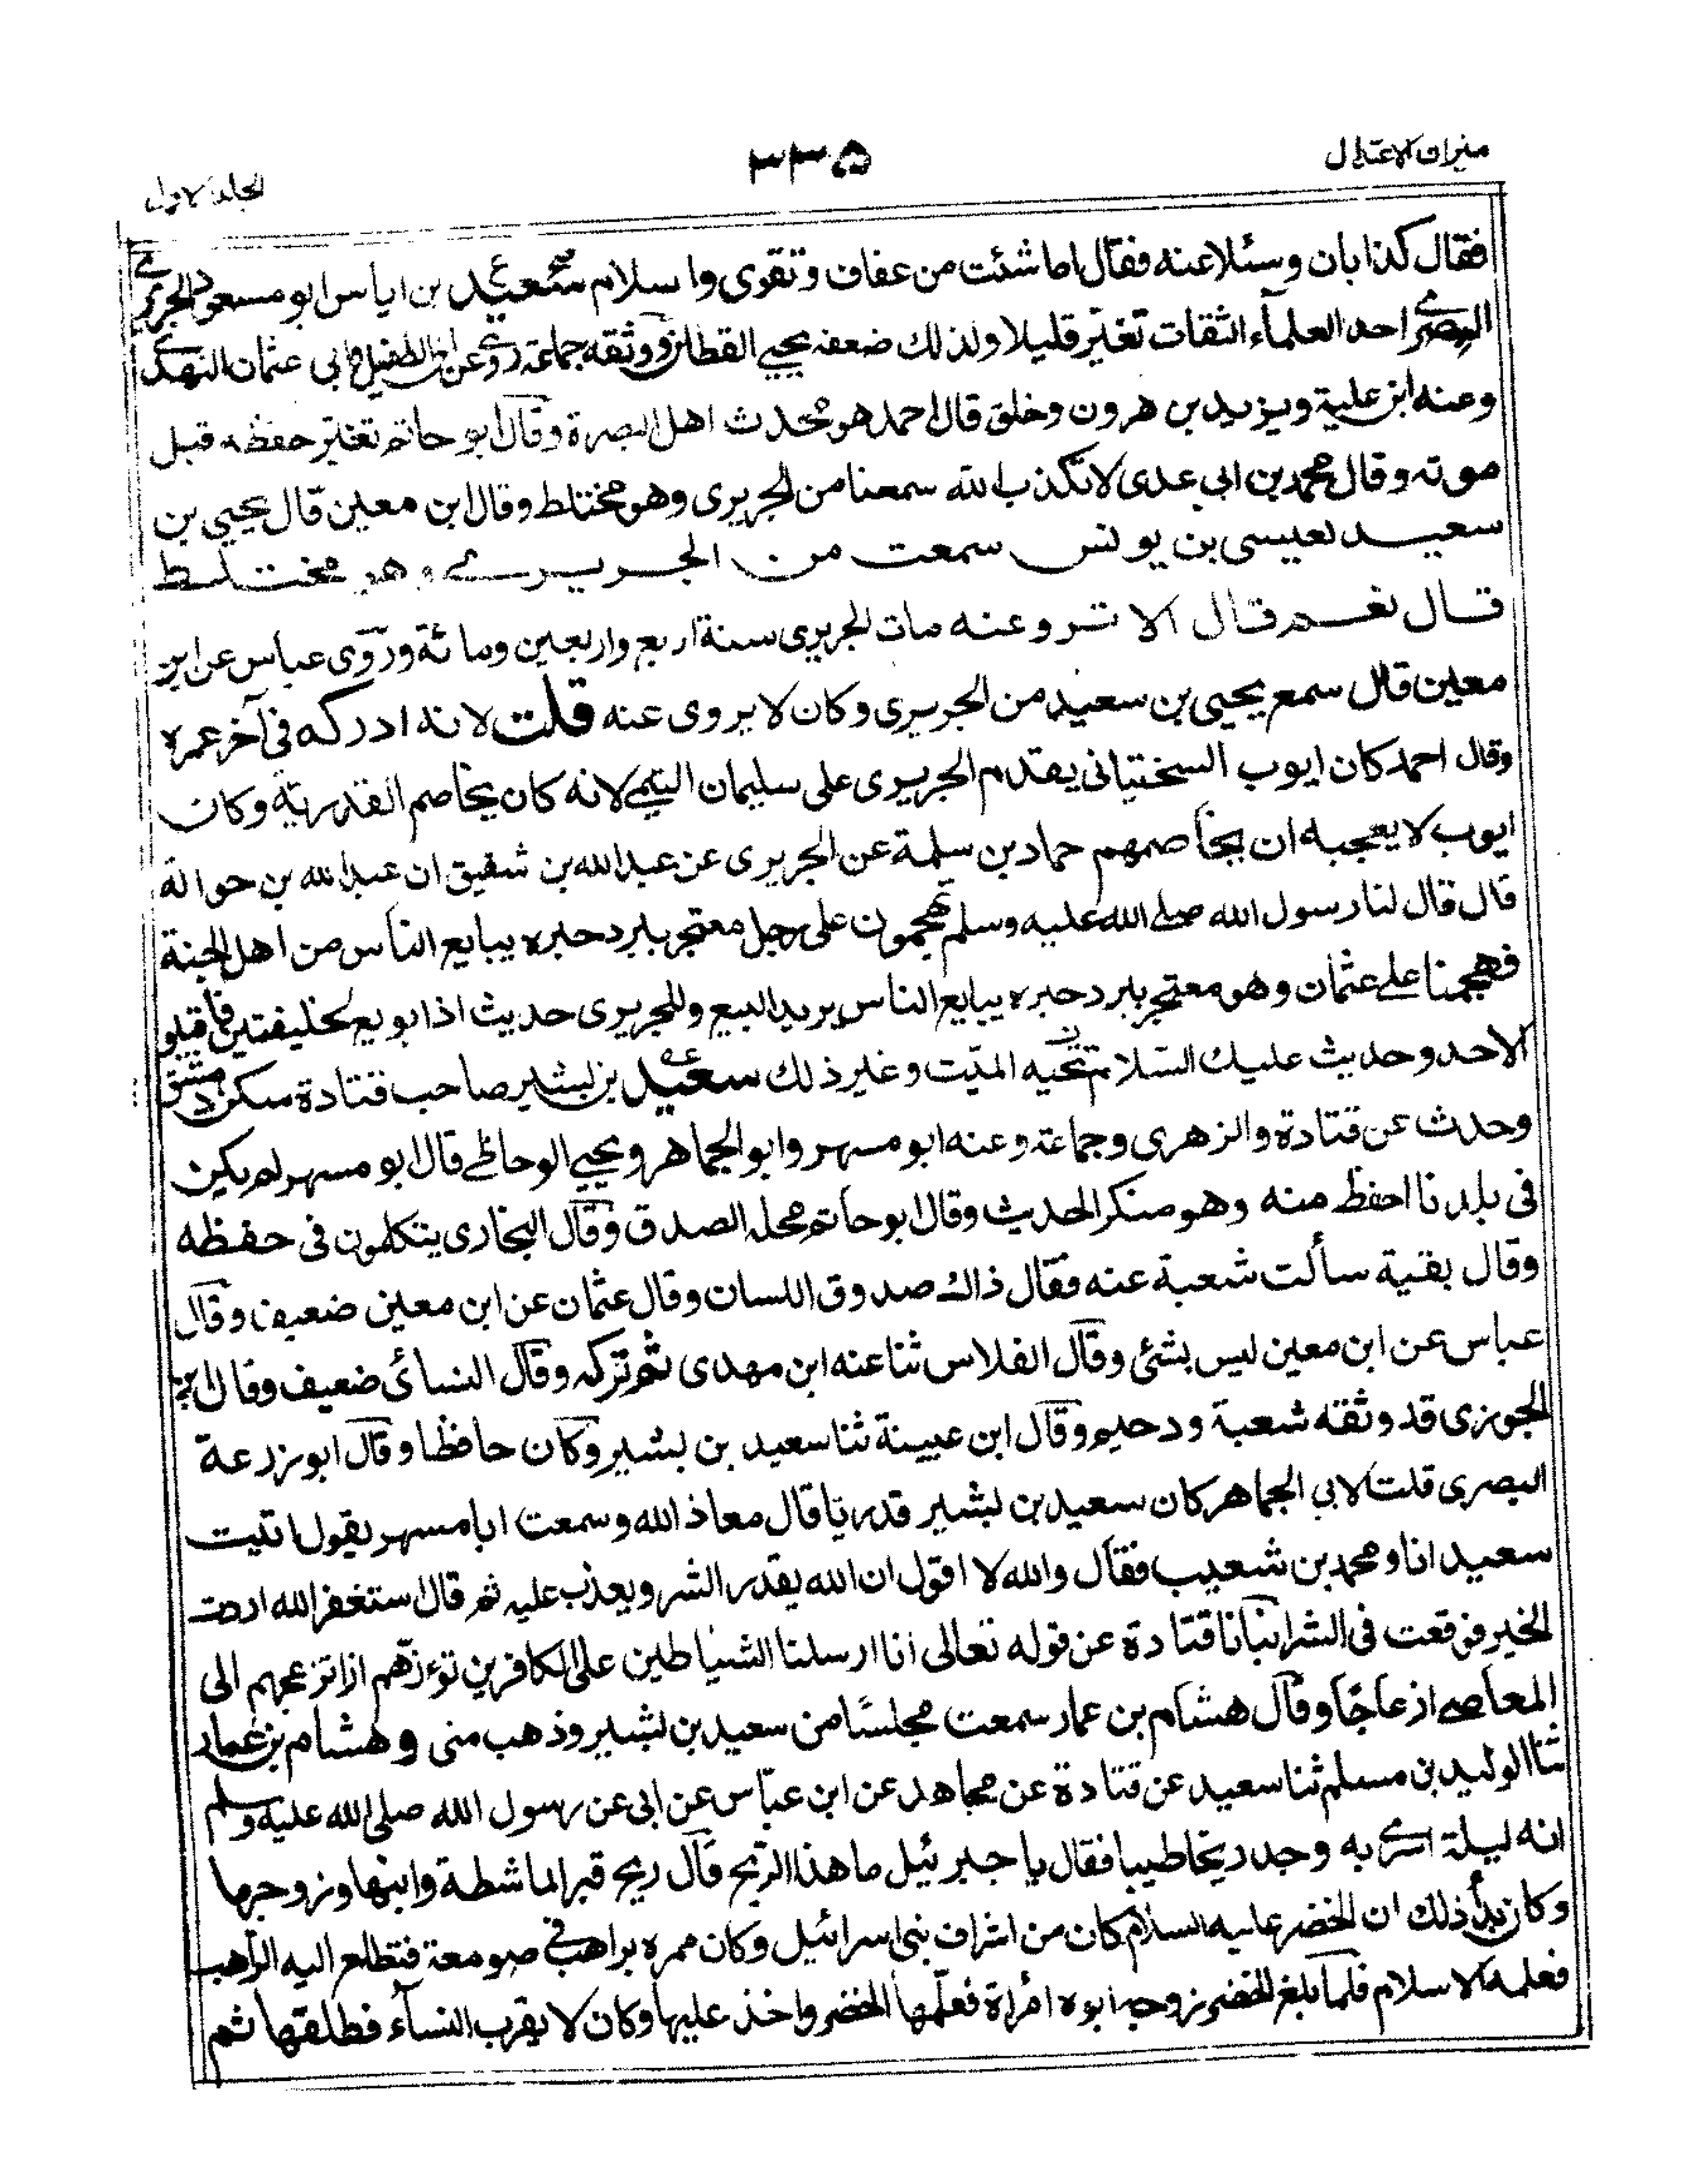 ميزان الاعتدال
٣٣٥
الجلد الاول
فقال كذابان وسئلا عنه فقال اما شئت من عفاف وتقوى واسلام سعيد بن اياس ابو مسعود الجريرى
البصرى احد العلمآء الثقات تغيّر قليلا ولذلك ضعفه يحيى القطان ووثقه جماعة روى عن ابى الطفيل وابى عثمان النهدى
وعنه ابن علية ويزيد بن هرون وخلق قال احمد هو محدث اهل البصرة وقال ابو حاتم تغيّر حفظه قبل
موته وقال محمد بن ابى عدى لا نكذب الله سمعنا من الجريرى وهو مختلط وقال ابن معين قال يحيى بن
سعيد لعيسى بن يونس سمعت من الجريرى وهو مختلط
قال نعم قال لا ترو عنه مات الجريرى سنة اربع واربعين ومائة وروى عباس عن ابن
معين قال سمع يحيى بن سعيد من الجريرى وكان لا يروى عنه قلت لانه ادركه فى آخر عمره
وقال احمد كان ايوب السختيانى يقدم الجريرى على سليمان التيمى لانه كان يخاصم القدرية وكان
ايوب لا يعجبه ان يخاصمهم حماد بن سلمة عن الجريرى عن عبد الله بن شقيق ان عبد الله بن حوالة
قال قال لنا رسول الله صلى الله عليه وسلم تهجمون على رجل معتجر ببرد حبره يبايع الناس من اهل الجنة
فهجمنا على عثمان وهو معتجر ببرد حبره يبايع الناس يريد البيع وللجريرى حديث اذا بويع لخليفتين فاقتلوا
الاحد وحديث عليك السّلام تحيه الميّت وغير ذلك سعيد بن بشير صاحب قتادة سكن دمشق
وحدث عن قتادة والزهرى وجماعة وعنه ابو مسهر وابو الجماهر ويحيى الوحاظى قال ابو مسهر لم يكن
فى بلدنا احفظ منه وهو منكر الحديث وقال ابو حاتم محله الصدق وقال البخارى يتكلمون فى حفظه
وقال بقية سألت شعبة عنه فقال ذاك صدوق اللسان وقال عثمان عن ابن معين ضعيف وقال
عباس عن ابن معين ليس بشئ وقال الفلاس ثنا عنه ابن مهدى ثم تركه وقال النسائى ضعيف وقال ابن
الجوزى قد وثقه شعبة ودحيم وقال ابن عيينة ثنا سعيد بن بشير وكان حافظا وقال ابو زرعة
البصرى قلت لابى الجماهر كان سعيد بن بشير قدريّا قال معاذ الله وسمعت ابا مسهر يقول اتيت
سعيد انا ومحمد بن شعيب فقال والله لا اقول ان الله يقدر الشر ويعذب عليه ثم قال استغفر الله اردت
الخير فوقعت فى الشر انبانا قتادة عن قوله تعالى انا ارسلنا الشياطين على الكافرين تؤزّهم ازا تزعجهم الى
المعاصى ازعاجًا وقال هشام بن عمار سمعت مجلسًا من سعيد بن بشير وذهب منى و هشام بن عمار
ثنا الوليد بن مسلم ثنا سعيد عن قتادة عن مجاهد عن ابن عبّاس عن ابى عن رسول الله صلى الله عليه وسلم
انه ليلة اسرى به وجد ريحًا طيبا فقال يا جبرئيل ما هذا الرّيح قال ريح قبر الماشطة وابنها وزوجها
وكان بدأ ذلك ان الخضر عليه السلام كان من اشراف بنى اسرائيل وكان ممره براهب فى صومعة فتطلع اليه الرّاهب
فعلمه الاسلام فلما بلغ الخضر زوجه ابوه امرأة فعلّمها الخضر واخذ عليها وكان لا يقرب النسآء فطلقها ثم